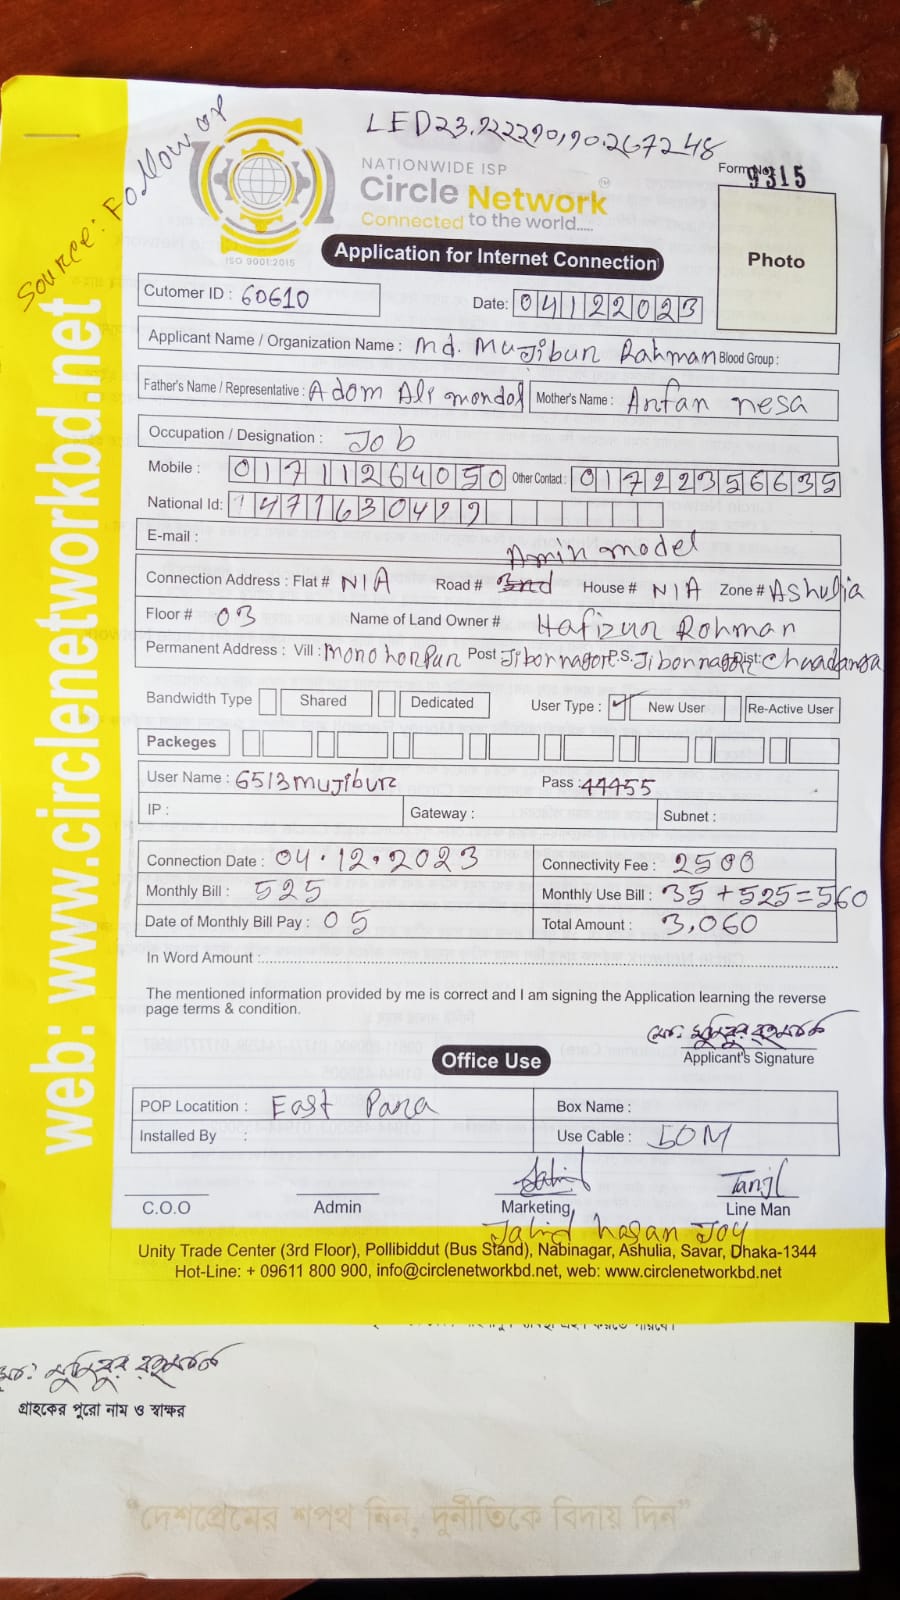 LED23.922290,90.267248
Source: Follow up
NATIONWIDE ISP
Form No
9315
Circle Network
Connected to the world.....
ISO 9001:2015
Application for Internet Connection
Photo
Cutomer ID : 60610
Date: 04122023
Applicant Name / Organization Name : Md. Mujibur Rahman Blood Group :
Father's Name / Representative : Adom Ali mondol Mother's Name : Anfan nesa
Occupation / Designation : Job
Mobile : 01711264050 Other Contact : 01722356635
National Id: 1471630422
E-mail :
Amin model
Connection Address : Flat # N/A Road # House # N/A Zone # Ashulia
Floor # 03 Name of Land Owner # Hafizur Rohman
Permanent Address : Vill : Monohorpur Post Jibonnagor P.S. Jibonnagor Dist: Chuadanga
Bandwidth Type Shared Dedicated User Type : ✓ New User Re-Active User
Packeges
User Name : 6513mujibur Pass : 44455
IP : Gateway : Subnet :
Connection Date : 04.12.2023 Connectivity Fee : 2500
Monthly Bill : 525 Monthly Use Bill : 35 + 525 = 560
Date of Monthly Bill Pay : 05 Total Amount : 3,060
In Word Amount :
The mentioned information provided by me is correct and I am signing the Application learning the reverse
page terms & condition.
মোঃ মুজিবুর রহমান
Applicant's Signature
Office Use
POP Locatition : East Para Box Name :
Installed By : Use Cable : 50M
Tanjil
C.O.O Admin Marketing Line Man
Jahid hasan Joy
Unity Trade Center (3rd Floor), Pollibiddut (Bus Stand), Nabinagar, Ashulia, Savar, Dhaka-1344
Hot-Line: + 09611 800 900, info@circlenetworkbd.net, web: www.circlenetworkbd.net
web: www.circlenetworkbd.net
মোঃ মুজিবুর রহমান
গ্রাহকের পুরো নাম ও স্বাক্ষর
“দেশপ্রেমের শপথ নিন, দুর্নীতিকে বিদায় দিন”